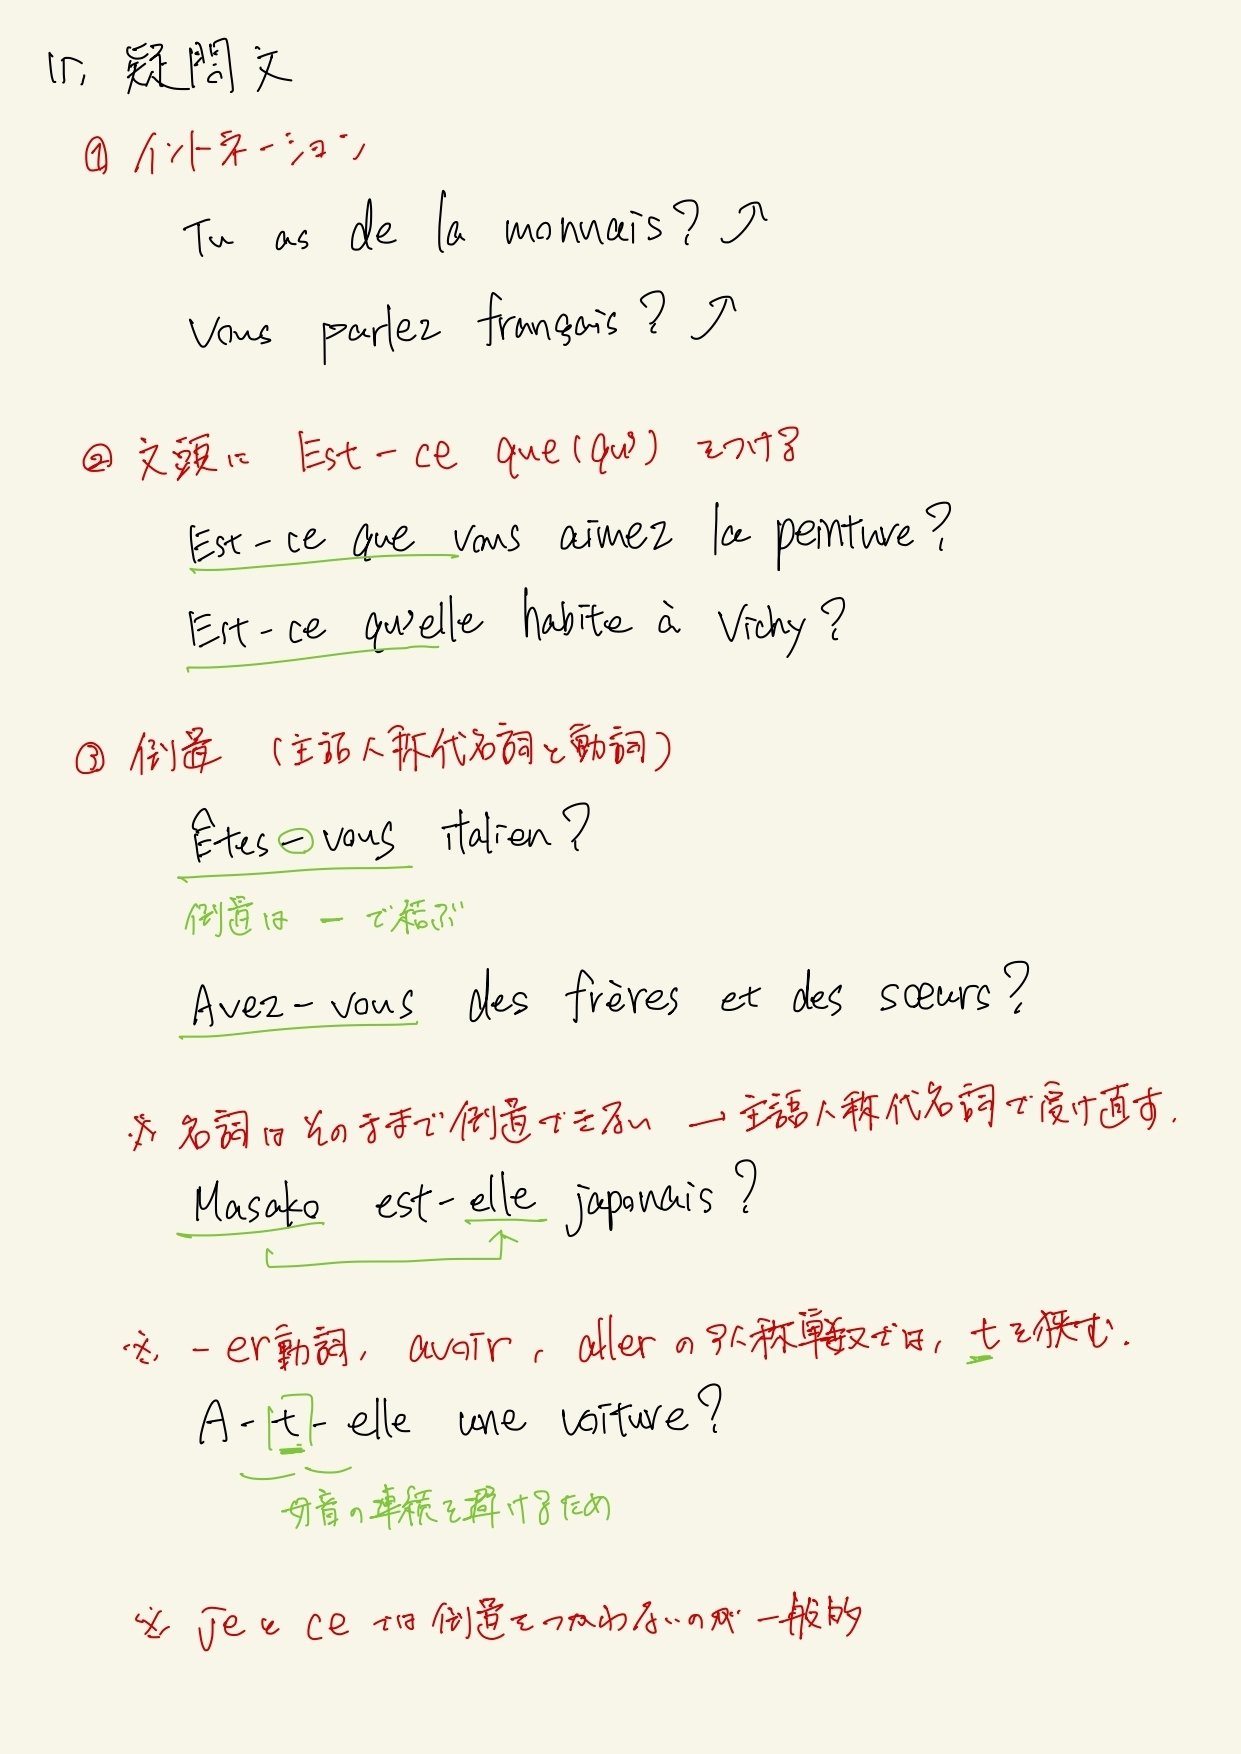 15. 疑問文
① イントネーション
Tu as de la monnais? ↗
Vous parlez français? ↗
② 文頭に Est-ce que (qu') をつける
Est-ce que vous aimez la peinture?
Est-ce qu'elle habite à Vichy?
③ 倒置 (主語人称代名詞と動詞)
Êtes-vous italien?
倒置は - で結ぶ
Avez-vous des frères et des sœurs?
※ 名詞はそのままで倒置できない → 主語人称代名詞で受け直す.
Masako est-elle japonais?
※ -er動詞, avoir, aller の3人称単数では, t を挟む.
A-t-elle une voiture?
母音の連続を避けるため
※ je と ce では倒置をつかわないのが一般的